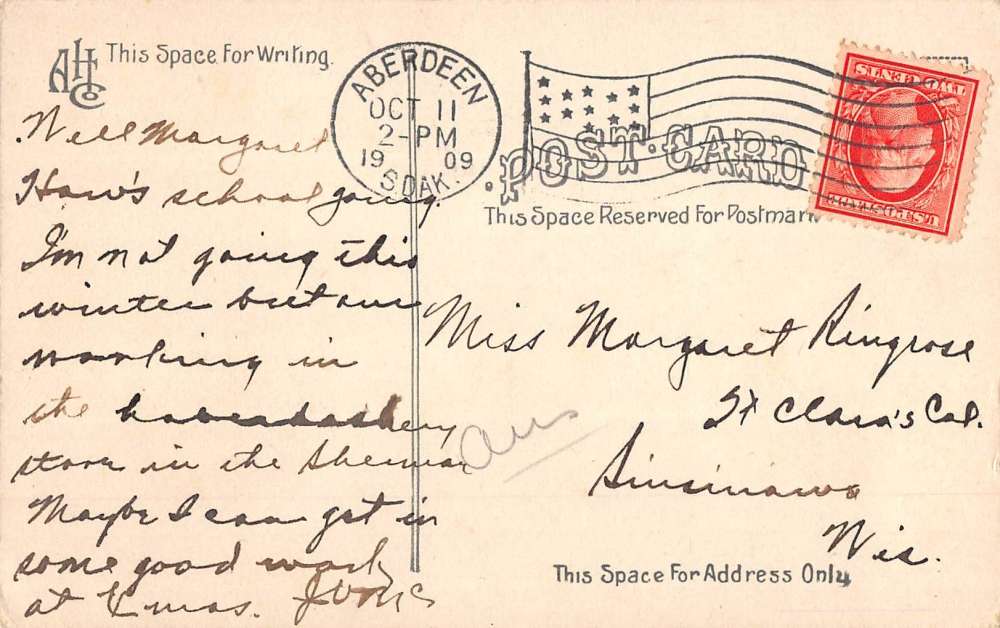 AHCo
This Space For Writing.
ABERDEEN
OCT 11
2-PM
1909
S.DAK.
POST CARD
This Space Reserved For Postmark
TWO CENTS
U.S. POSTAGE
Well Margaret
How's school going.
I'm not going this
winter but am
working in
the haberdashery
store in the Sherman
Maybe I can get in
some good work
at Xmas.
Miss Margaret Ringrose
St Clara's Col.
Ans
Sinsinawa
Wis.
This Space For Address Only